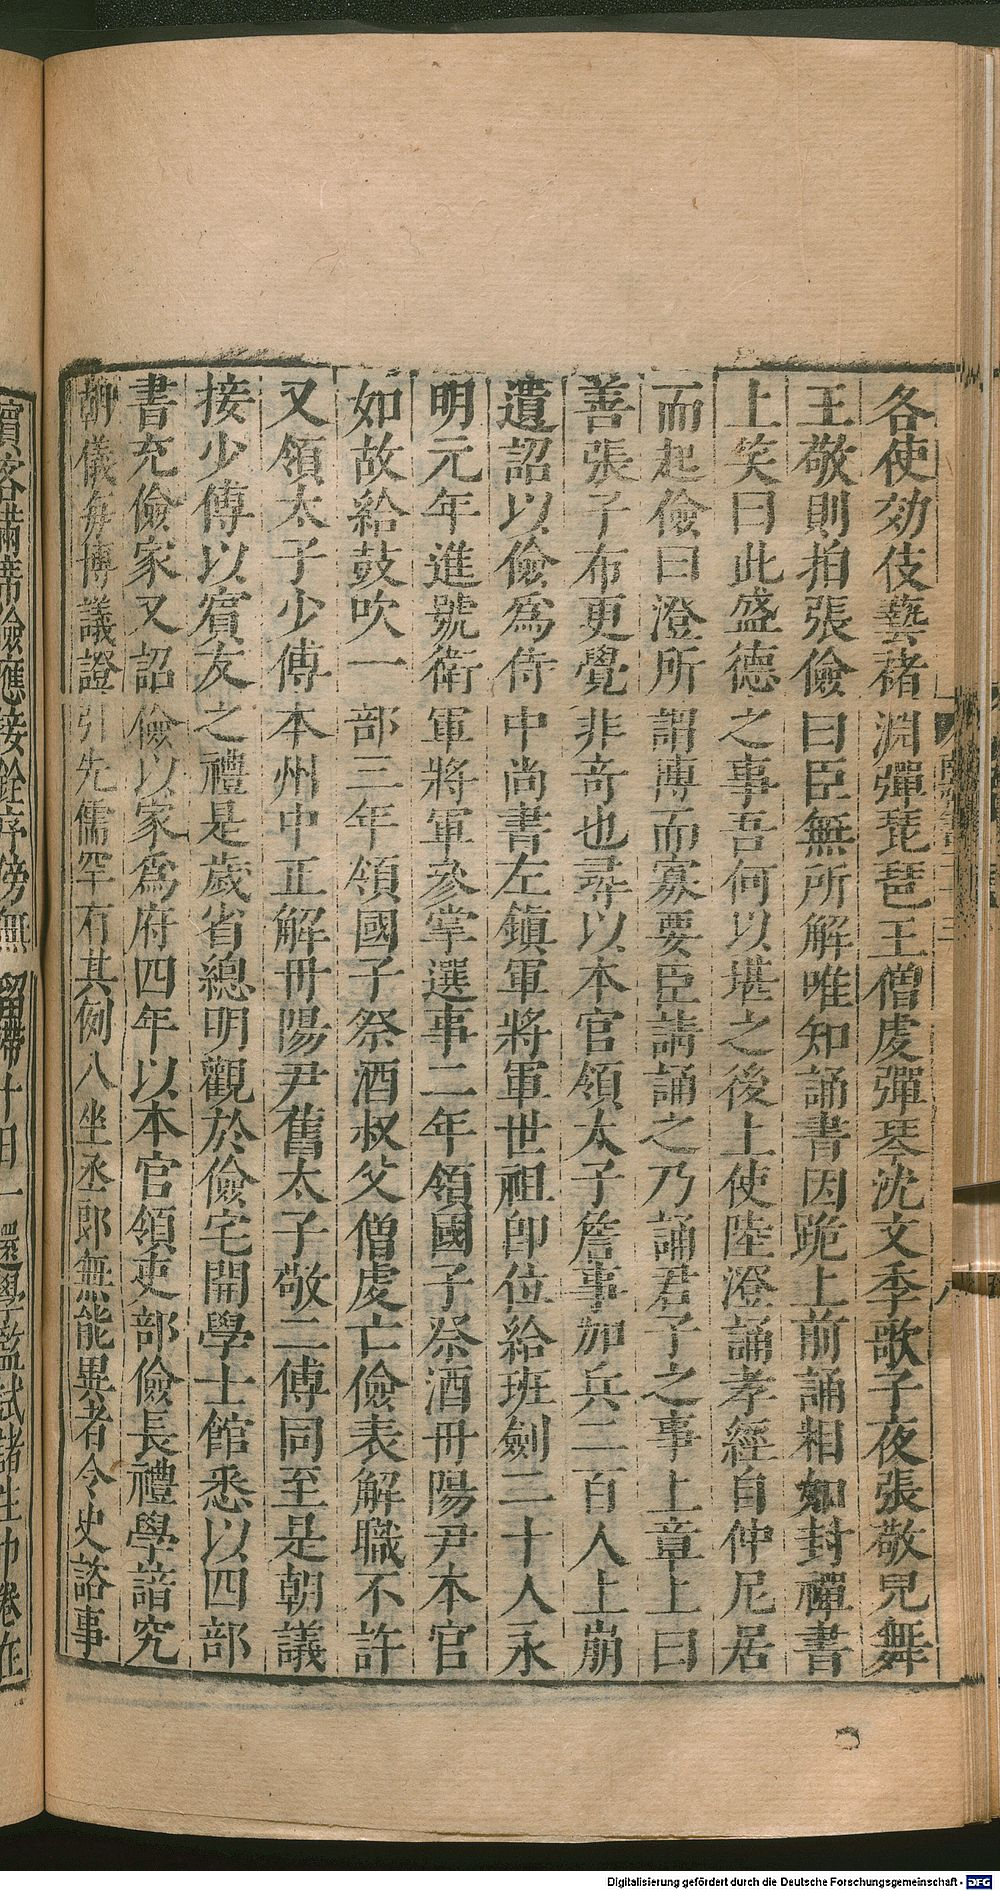 各使効伎藝褚淵彈琵琶王僧虔彈琴沈文季歌子夜張敬兒舞
王敬則拍張儉曰臣無所解唯知誦書因跪上前誦相如封禪書
上笑曰此盛德之事吾何以堪之後上使陸澄誦孝經自仲尼居
而起儉曰澄所謂博而寡要臣請誦之乃誦君子之事上章上曰
善張子布更覺非竒也尋以本官領太子詹事加兵二百人上崩
遺詔以儉爲侍中尚書左鎮軍將軍世祖卽位給班劍二十人永
明元年進號衛軍將軍叅掌選事二年領國子祭酒丹陽尹本官
如故給鼓吹一部三年領國子祭酒叔父僧虔亡儉表解職不許
又領太子少傅本州中正解丹陽尹舊太子敬二傅同至是朝議
接少傅以賓友之禮是歲省總明觀於儉宅開學士館悉以四部
書充儉家又詔儉以家爲府四年以本官領吏部儉長禮學諳究
朝儀每博議證引先儒罕有其例八坐丞郎無能異者令史諮事
賓客滿席儉應接銓序傍無留滯十日一還學監試諸生巾卷在
Digitalisierung gefördert durch die Deutsche Forschungsgemeinschaft - DFG